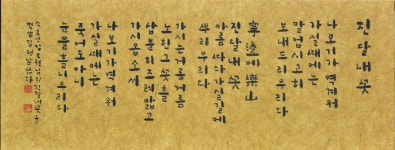 진달내꽃
나보기가역겨워
가실때에는
말업시고히
보내드리우리다
寧邊에藥山
진달내꽃
아름따다가실길에
뿌리우리다
가시는거름거름
노힌그꽃츨
삽분히즈려밟고
가시옵소셔
나보기가역겨워
가실때에는
죽어도아니
눈물흘니우리다